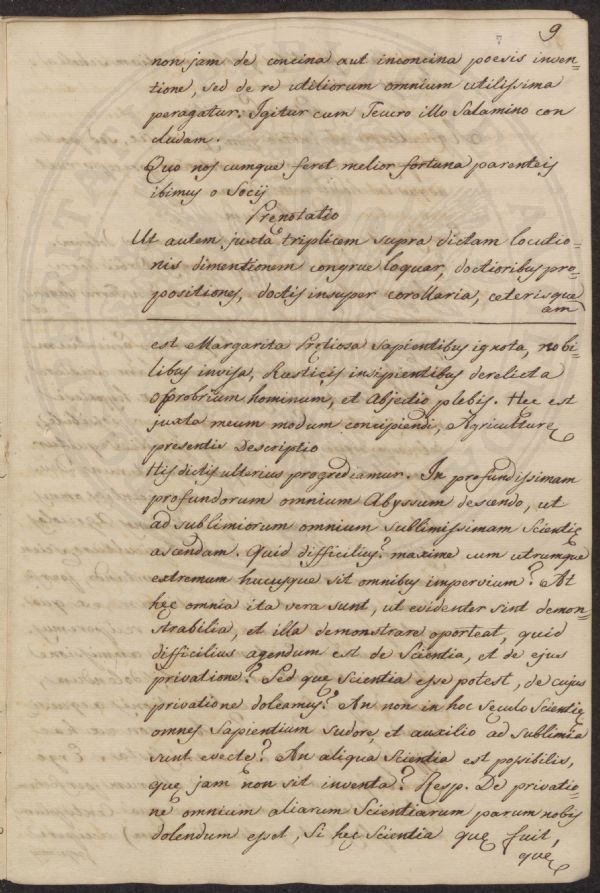 9
non jam de concina aut inconcina poesis inven=
tione, sed de re utiliorum omnium utilissima
peragatur. Igitur cum Teucro illo Salamino con
cludam.
Quo nos cumque feret melior fortuna parenteis
ibimus o Socij
Prenotatio
Ut autem juxta triplicem supra dictam locutio=
nis dimentionem congrue loquar, doctioribus pro=
positiones, doctis insuper corollaria, ceterisque
am
est Margarita Pretiosa Sapientibus ignota, nobi=
libus invisa, Rusticis insipientibus derelicta
Opprobrium hominum, et Abjectio plebis. Hec est
juxta meum modum concipiendi, Agriculturę
presentis Descriptio
His dictis ulterius progrediamur. In profundissimam
profundorum omnium Abyssum descendo, ut
ad sublimiorum omnium sublimissimam Scientię
ascendam. Quid difficilius? maxime cum utrumque
extremum hucusque sit omnibus impervium? At
hęc omnia ita vera sunt, ut evidenter sint demon=
strabilia, et illa demonstrare oporteat, quid
difficilius agendum est de Scientia, et de ejus
privatione? Sed quę Scientia esse potest, de cujus
privatione doleamus? An non in hoc Seculo Scientię
omnes Sapientium sudore, et auxilio ad sublimia
sunt evectę? An aliqua Scientia est possibilis,
quę jam non sit inventa? Resp. De privatio=
ne omnium aliarum Scientiarum parum nobis
dolendum esset, Si hęc Scientia quę fuit,
quę